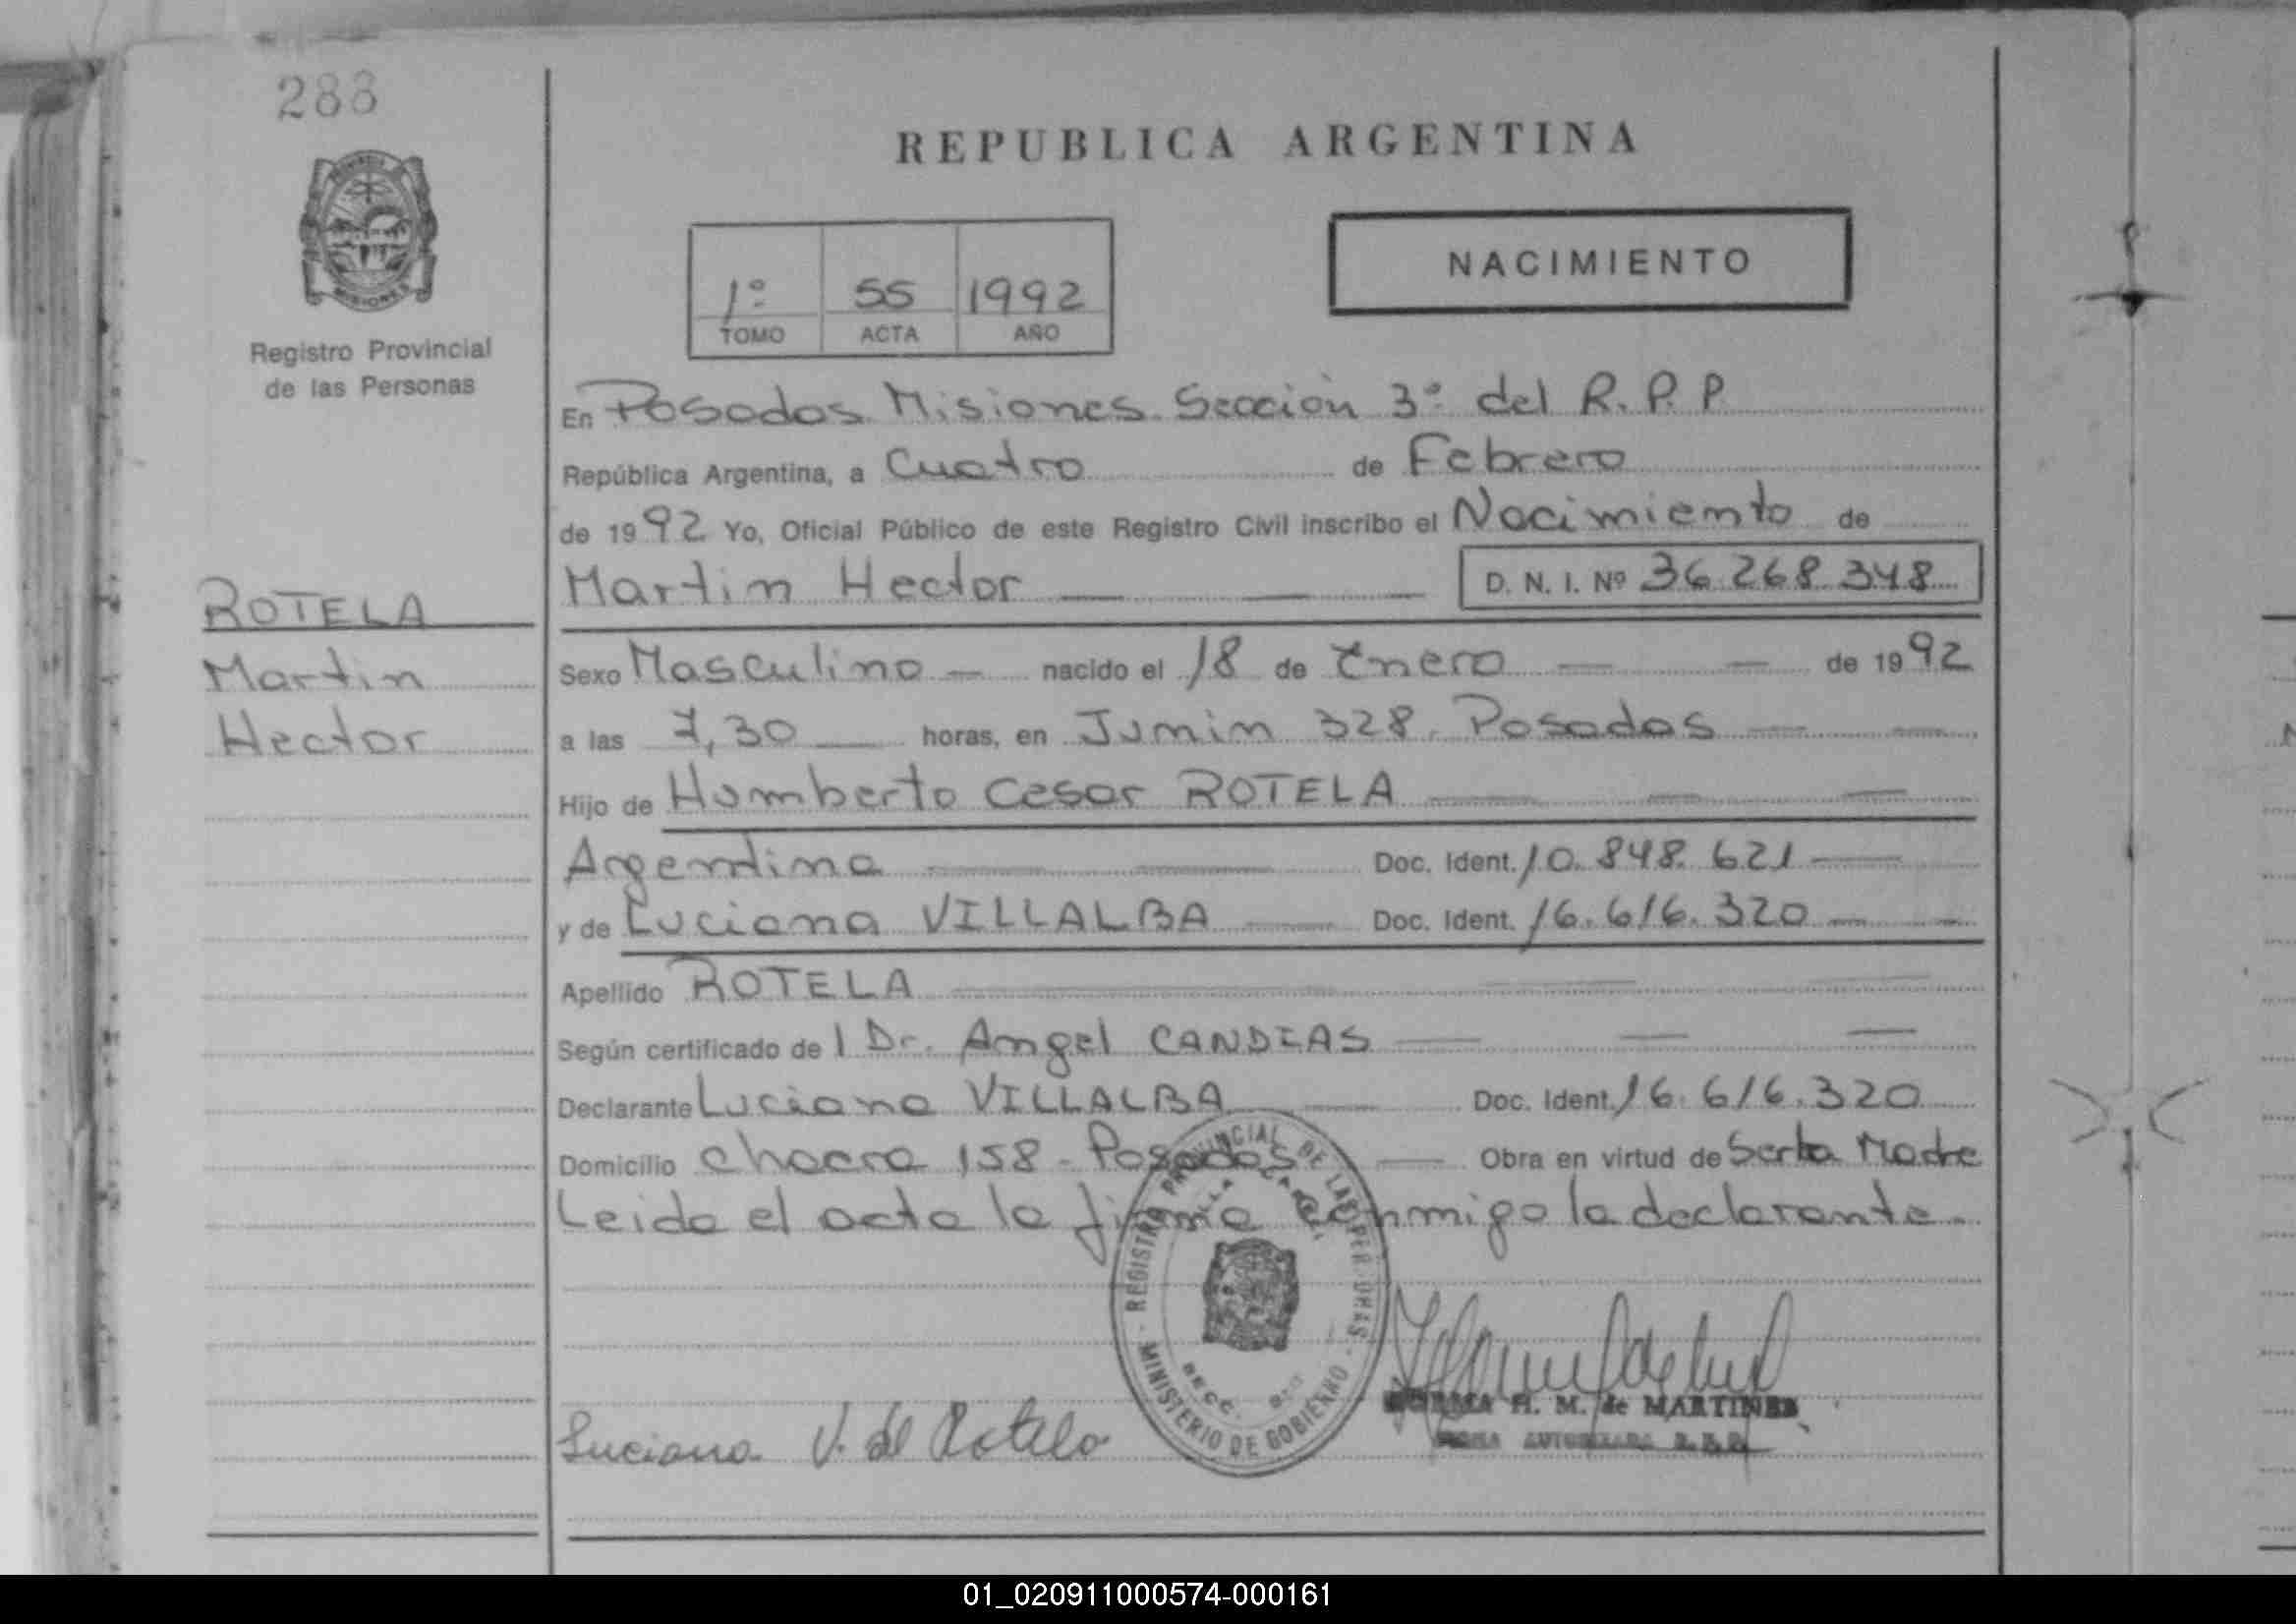 288
REPUBLICA ARGENTINA
MISIONES
Registro Provincial
de las Personas
1º 55 1992
TOMO ACTA AÑO
NACIMIENTO
En Posadas Misiones Sección 3º del R. P. P.
República Argentina, a Cuatro de Febrero
de 1992 Yo, Oficial Público de este Registro Civil inscribo el Nacimiento de
Martin Hector D. N. I. Nº 36.268.348
ROTELA
Martin
Hector
Sexo Masculino nacido el 18 de Enero de 1992
a las 7,30 horas, en Junin 328. Posadas
Hijo de Humberto Cesar ROTELA
Argentina Doc. Ident. 10.848.621
y de Luciana VILLALBA Doc. Ident. 16.616.320
Apellido ROTELA
Según certificado de l Dr. Angel CANDIAS
Declarante Luciana VILLALBA Doc. Ident. 16.616.320
Domicilio chacra 158 - Posadas Obra en virtud de Serla Madre
Leida el acta la firma conmigo la declarante.
REGISTRO PROVINCIAL DE LAS PERSONAS
SECC.
MINISTERIO DE GOBIERNO
Luciana V. de Rotela
NORMA H. M. de MARTINEZ
FIRMA AUTORIZADA R.P.P.
01_020911000574-000161